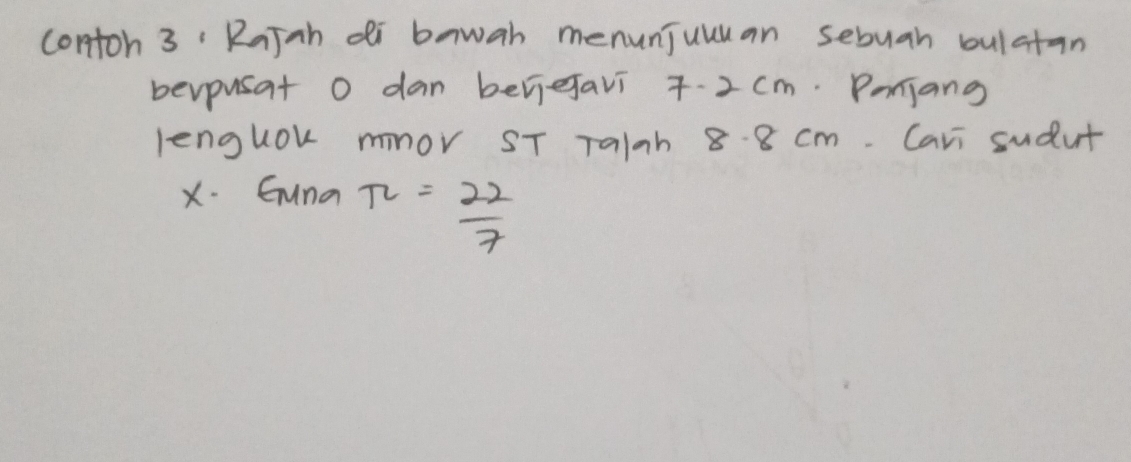 Contoh 3 : Rajah di bawah menunjukkan sebuah bulatan
berpusat O dan berjejari 7.2 cm. Panjang
lengkok minor ST ialah 8.8 cm. Cari sudut
x. Guna π = 22/7